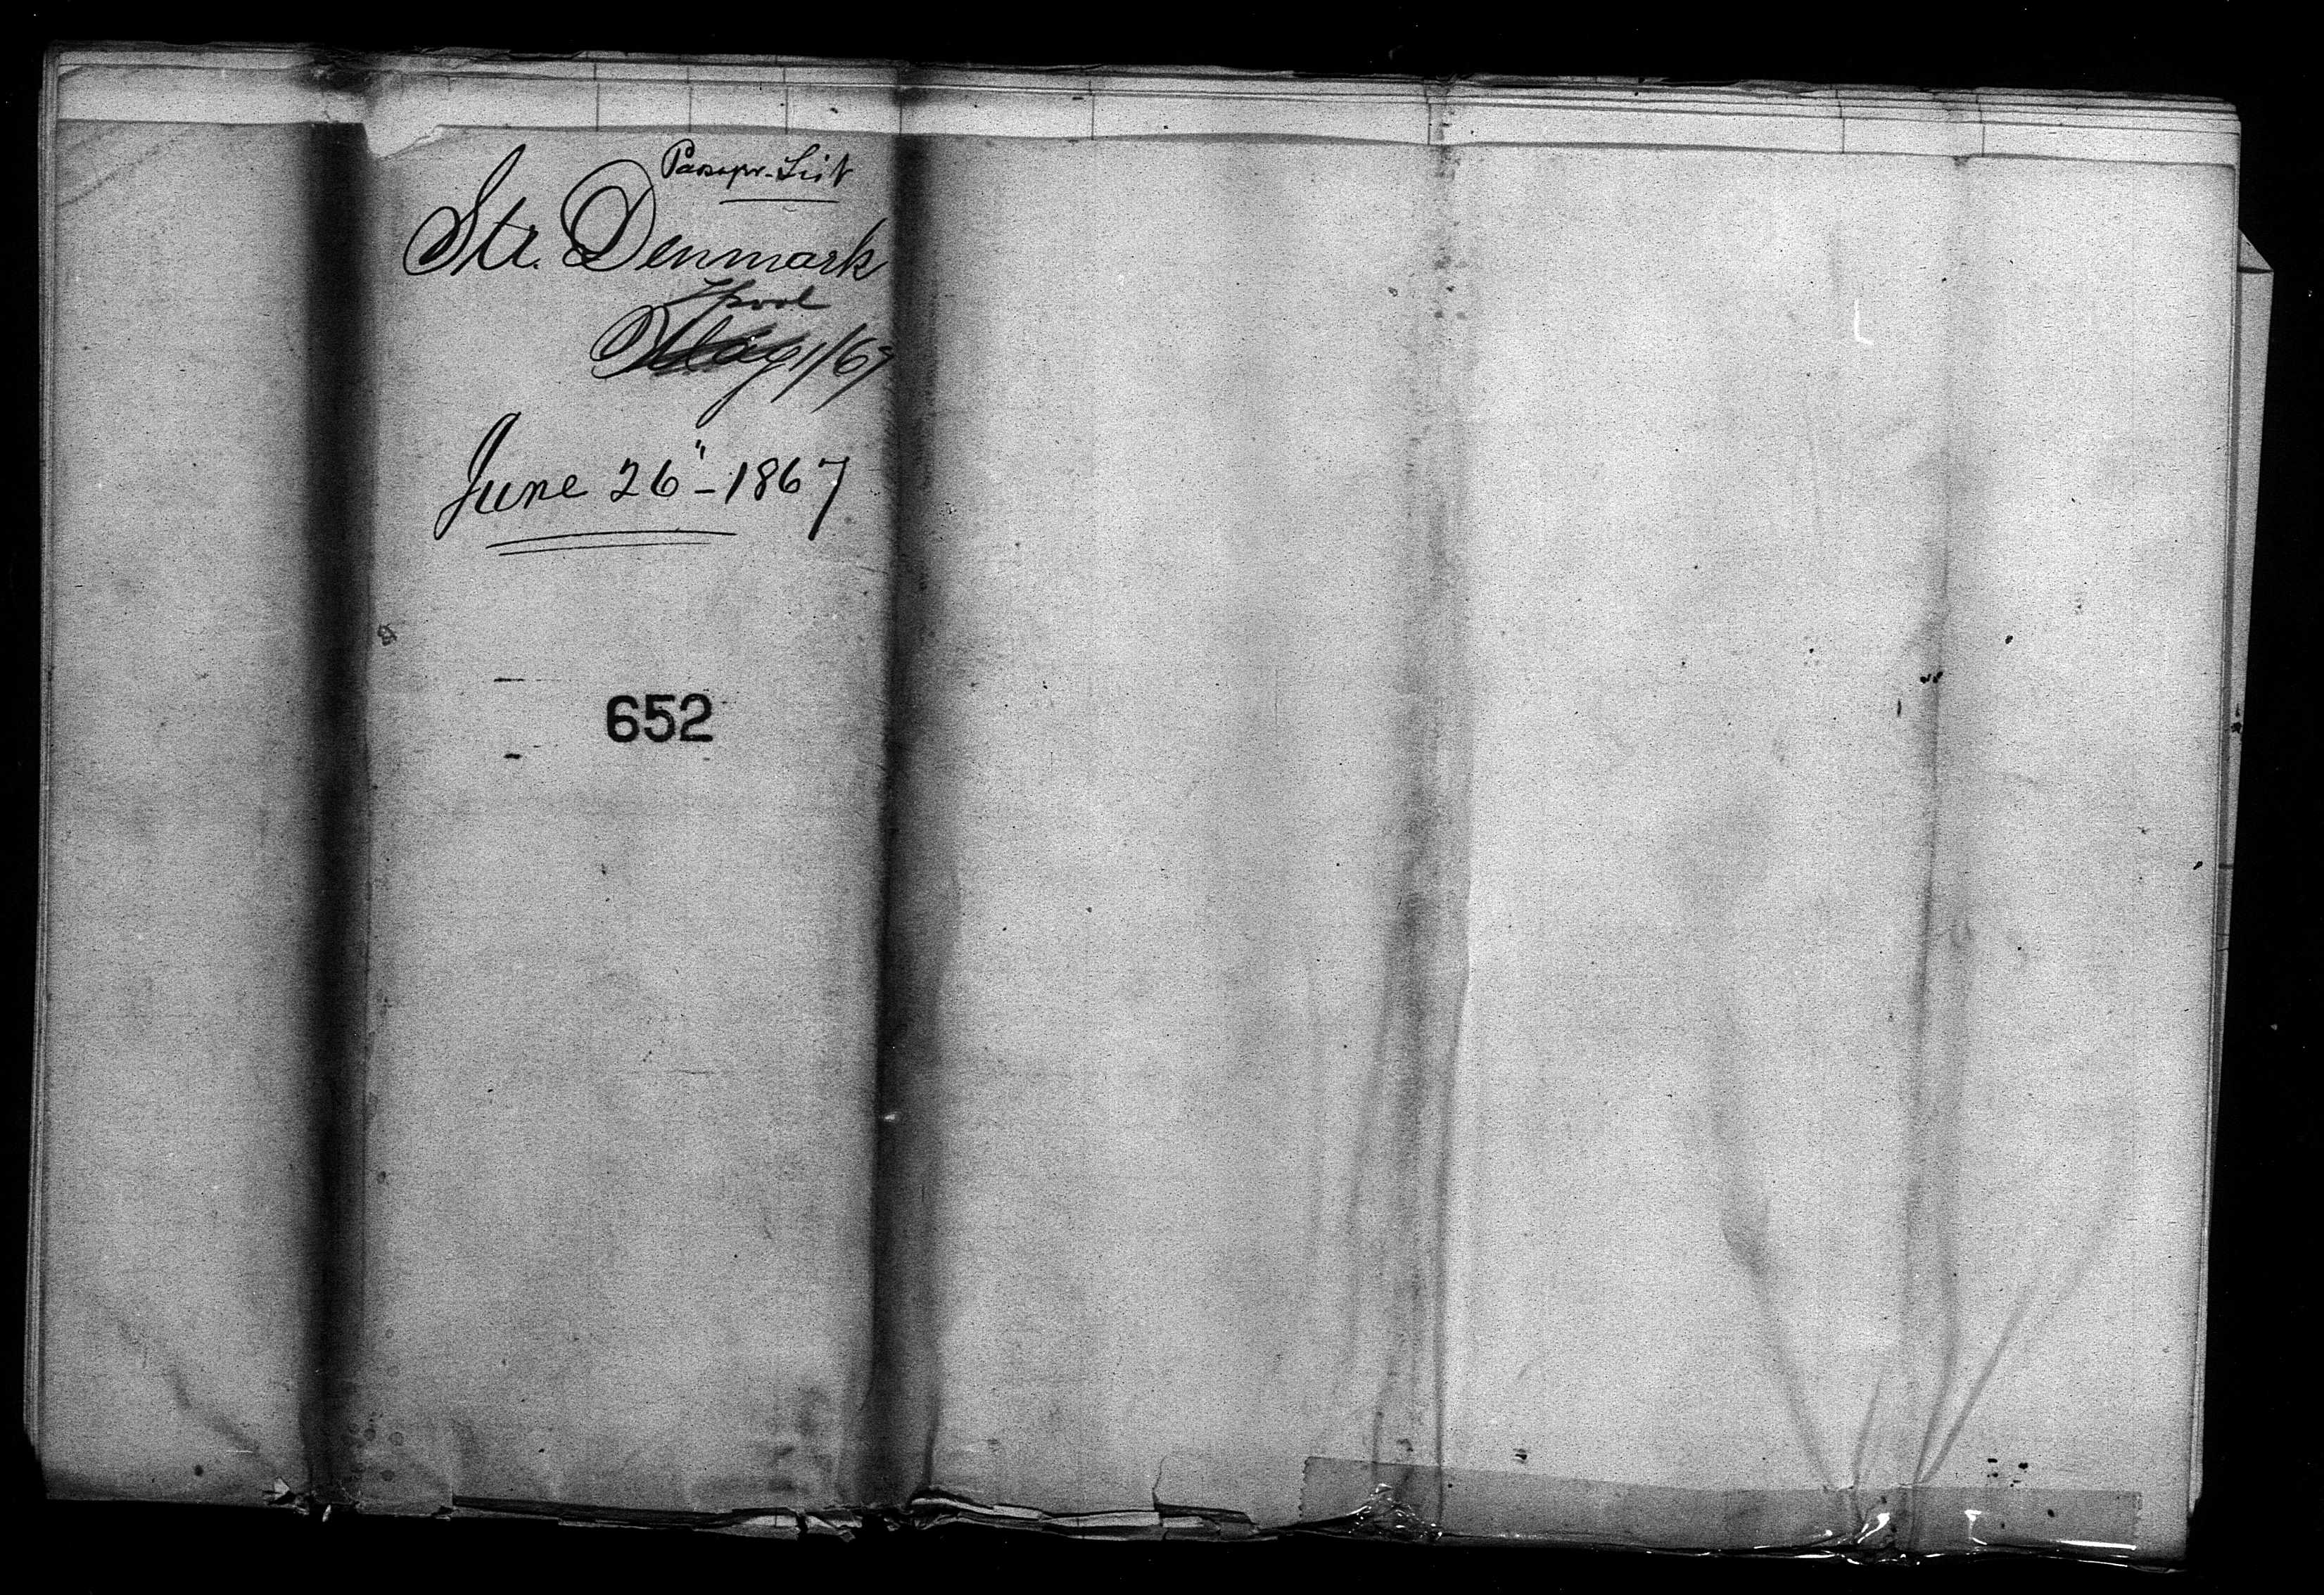 Passgr. List
Str. Denmark
Lpool
May 1/67
June 26" - 1867
652